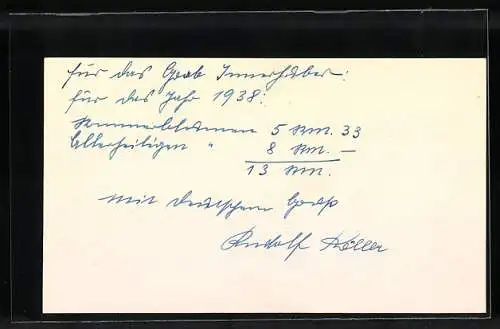 für das Grab Innerhuber:
für das Jahr 1938:
Sommerblumen 5 RM. 33
Allerheiligen " 8 RM. —
13 RM.
Mit deutschem Gruß
Rudolf Köller